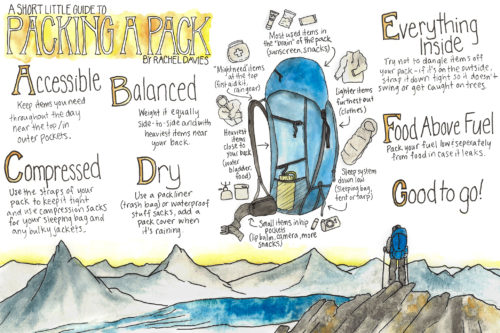 A SHORT LITTLE GUIDE TO
PACKING A PACK
BY RACHEL DAVIES
Accessible
Keep items you need
throughout the day
near the top/in
outer pockets.
Balanced
Weight it equally
side-to-side and with
heaviest items near
your back.
Compressed
Use the straps of your
pack to keep it tight
and use compression sacks
for your sleeping bag and
any bulky jackets.
Dry
Use a pack liner
(trash bag) or waterproof
stuff sacks, add a
pack cover when
it's raining
Most used items in
the "brain" of the pack
(sunscreen, snacks)
"Might need" items
at the top
(first aid kit,
rain gear)
Lighter items
furthest out
(clothes)
Heaviest
items
close to
your back
(water
bladder,
food)
Sleep system
down low
(sleeping bag,
tent or tarp)
Small items in hip
pockets
(lip balm, camera, more
snacks)
Everything
Inside
Try not to dangle items off
your pack - if it's on the outside,
strap it down tight so it doesn't
swing or get caught on trees.
Food Above Fuel
Pack your fuel low & seperately
from food in case it leaks.
Good to go!